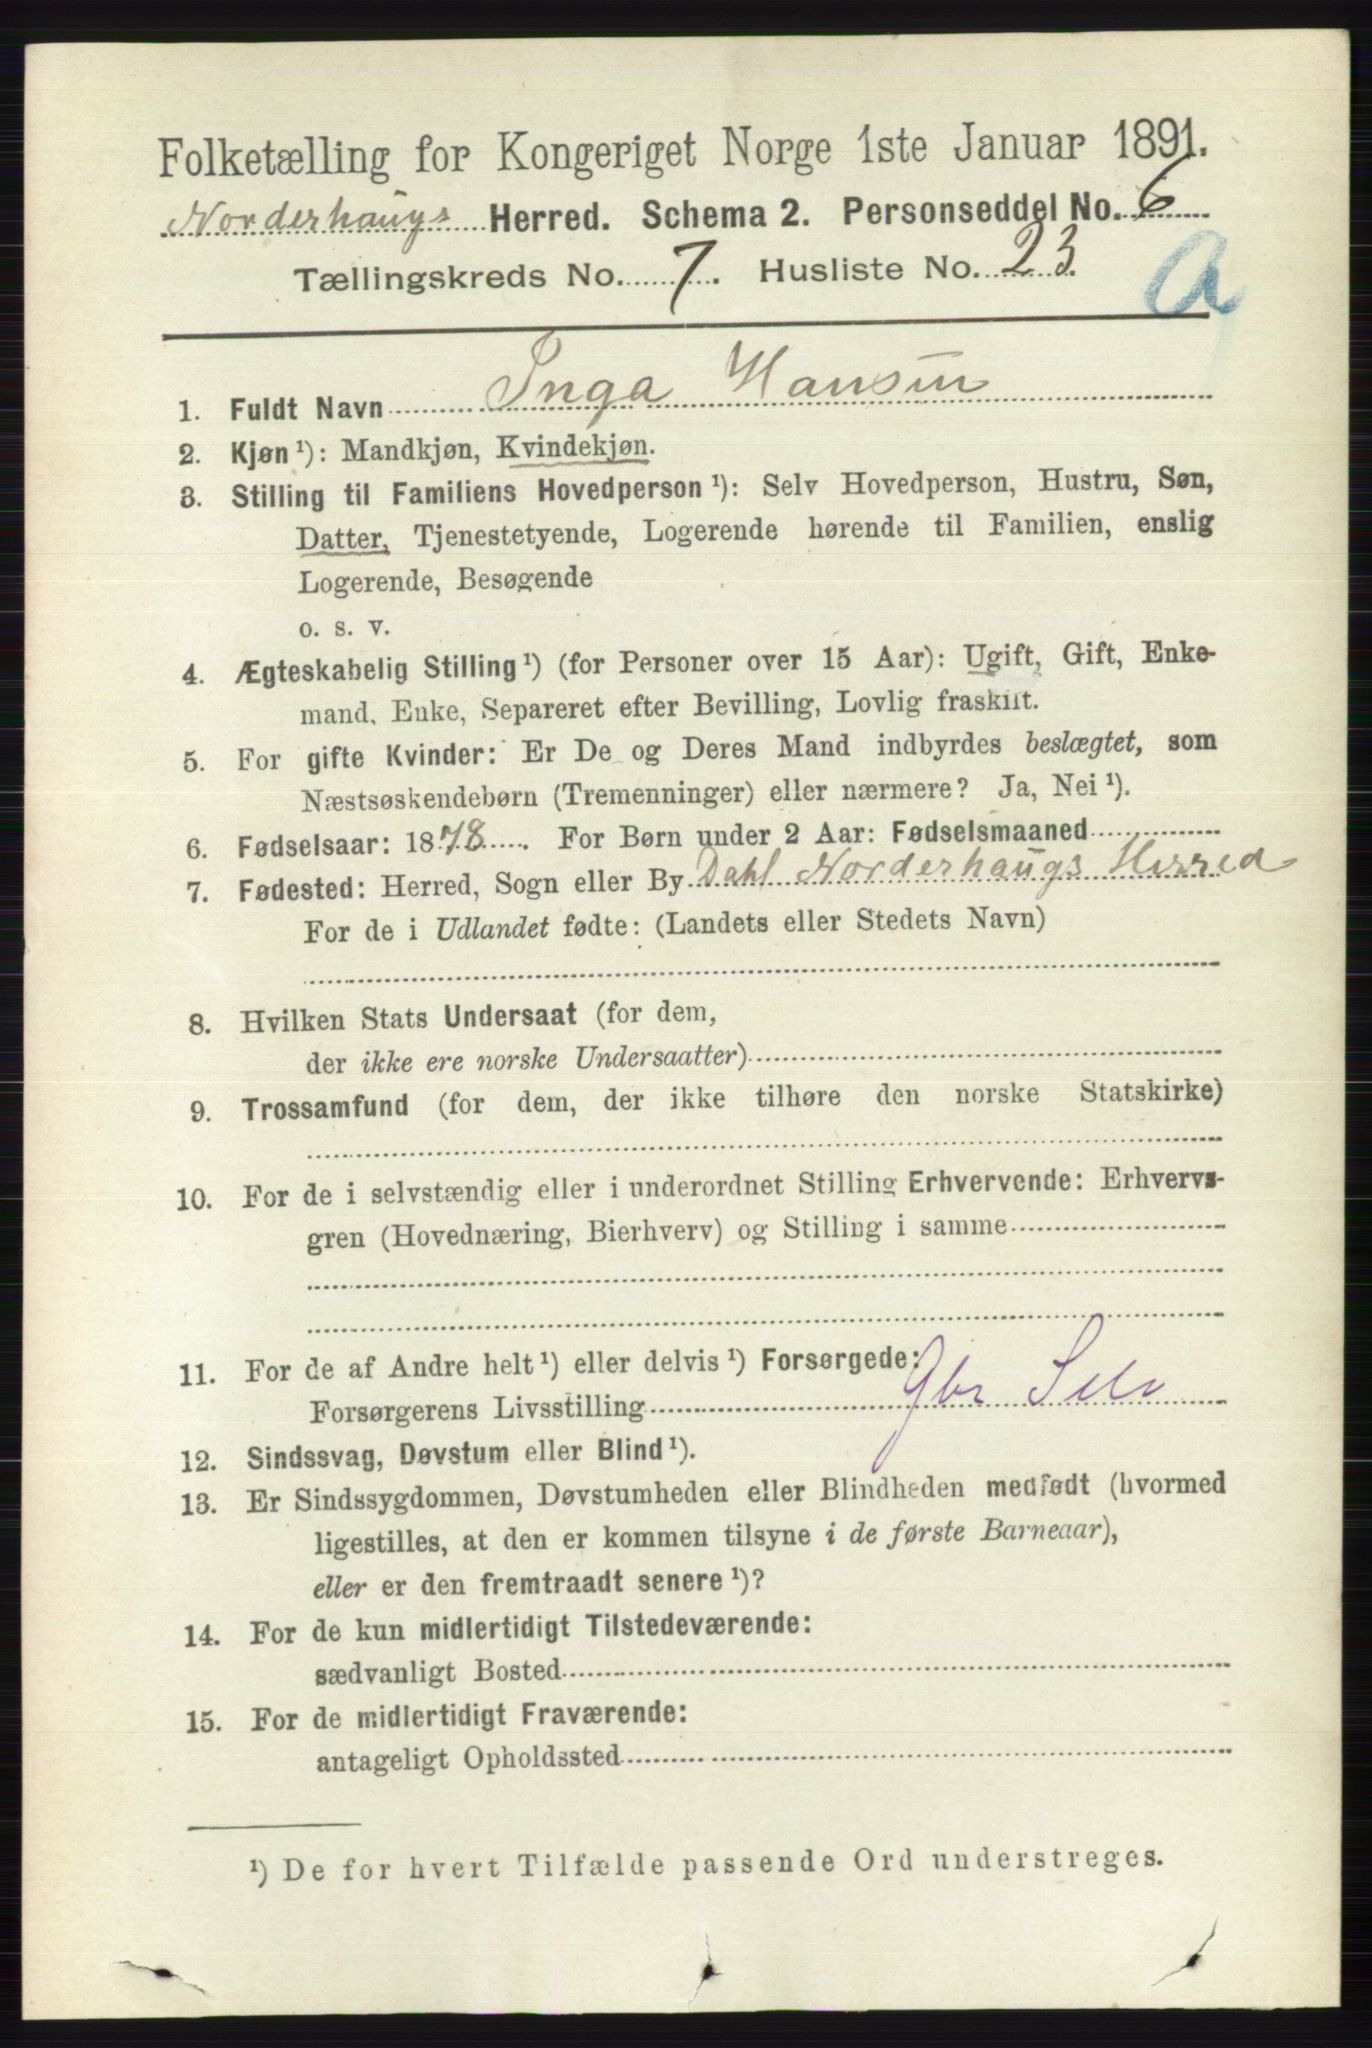 Folketælling for Kongeriget Norge 1ste Januar 1891.
Norderhaugs Herred. Schema 2. Personseddel No. 6
Tællingskreds No. 7. Husliste No. 23.
A
1. Fuldt Navn Inga Hansen
2. Kjøn ¹): Mandkjøn, Kvindekjøn.
3. Stilling til Familiens Hovedperson ¹): Selv Hovedperson, Hustru, Søn,
Datter, Tjenestetyende, Logerende hørende til Familien, enslig
Logerende, Besøgende
o. s. v.
4. Ægteskabelig Stilling ¹) (for Personer over 15 Aar): Ugift, Gift, Enke-
mand, Enke, Separeret efter Bevilling, Lovlig fraskilt.
5. For gifte Kvinder: Er De og Deres Mand indbyrdes beslægtet, som
Næstsøskendebørn (Tremenninger) eller nærmere? Ja, Nei ¹).
6. Fødselsaar: 1878. For Børn under 2 Aar: Fødselsmaaned
7. Fødested: Herred, Sogn eller By Dahl Norderhaugs Herred
For de i Udlandet fødte: (Landets eller Stedets Navn)
8. Hvilken Stats Undersaat (for dem,
der ikke ere norske Undersaatter)
9. Trossamfund (for dem, der ikke tilhøre den norske Statskirke)
10. For de i selvstændig eller i underordnet Stilling Erhvervende: Erhvervs-
gren (Hovednæring, Bierhverv) og Stilling i samme
11. For de af Andre helt ¹) eller delvis ¹) Forsørgede:
Forsørgerens Livsstilling Gbr Selv
12. Sindssvag, Døvstum eller Blind ¹).
13. Er Sindssygdommen, Døvstumheden eller Blindheden medfødt (hvormed
ligestilles, at den er kommen tilsyne i de første Barneaar),
eller er den fremtraadt senere ¹)?
14. For de kun midlertidigt Tilstedeværende:
sædvanligt Bosted
15. For de midlertidigt Fraværende:
antageligt Opholdssted
¹) De for hvert Tilfælde passende Ord understreges.